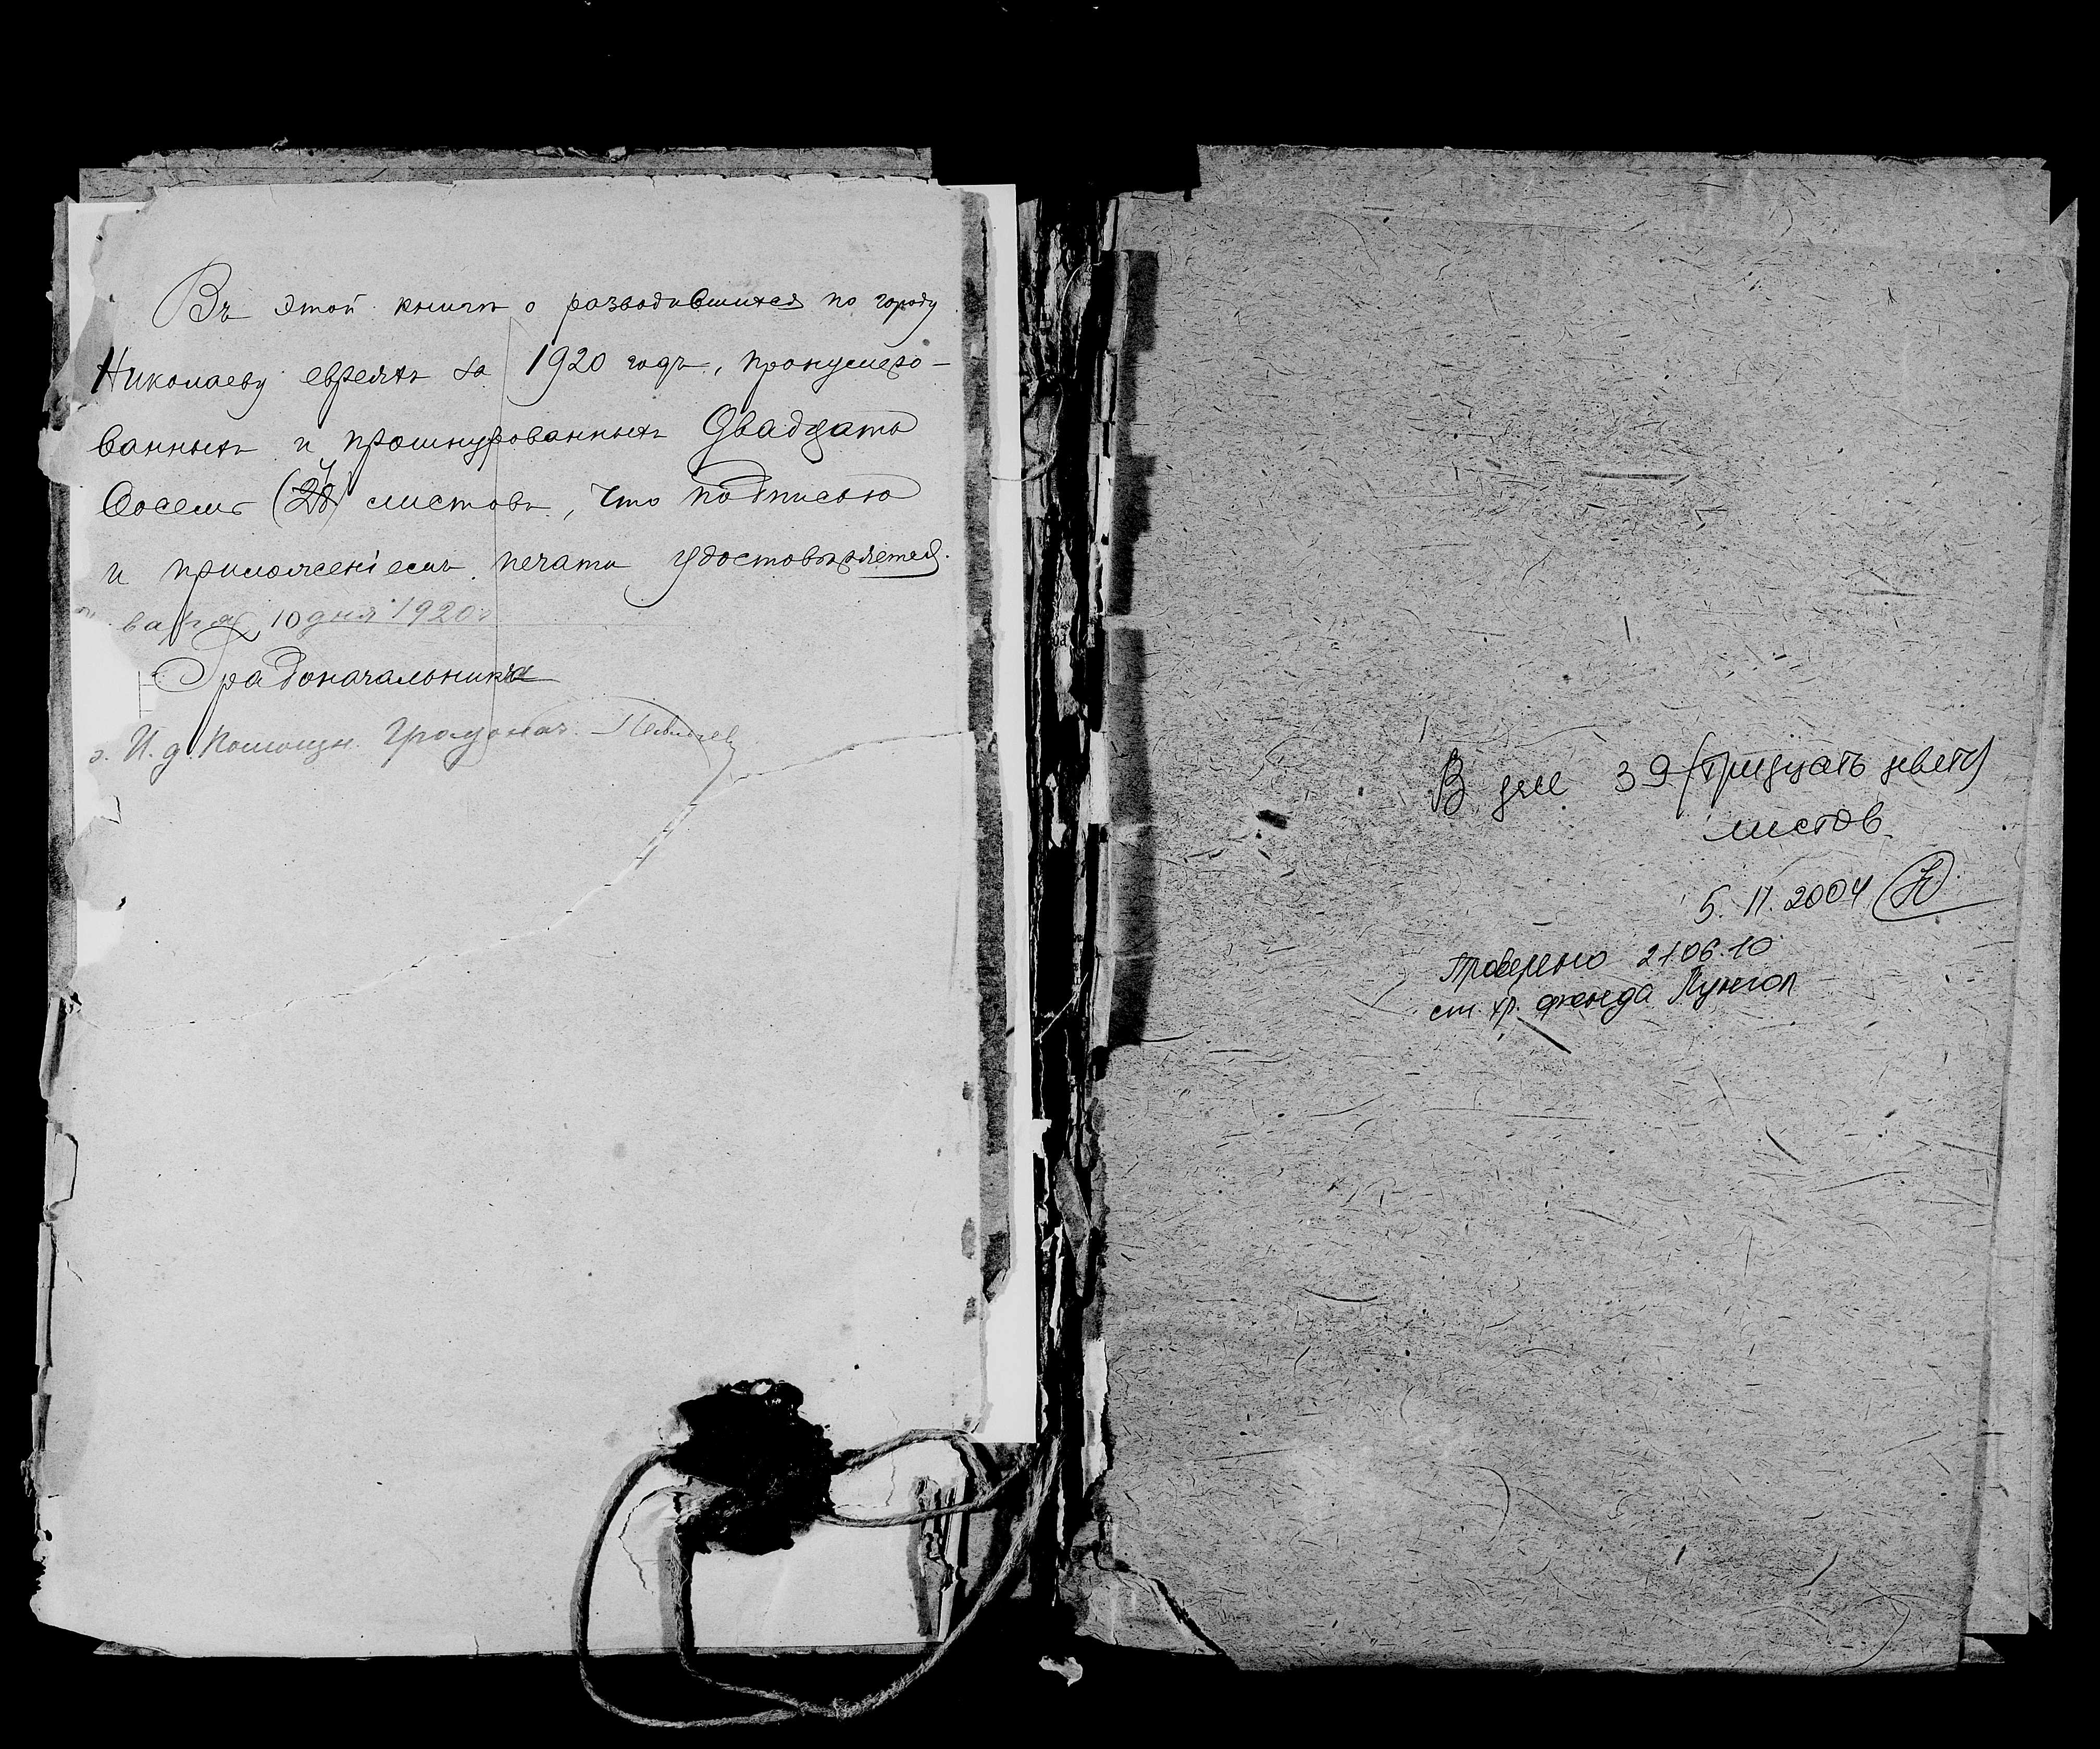 Въ этой книгѣ о разводившихся по городу
Николаеву евреяхъ за 1920 годъ, пронумеро-
ванныхъ и прошнурованныхъ двадцать
восемь (28) листовъ, что подписью
и приложеніемъ печати удостовѣряется.
10 дня 1920 г
Градоначальника
И. д. Помощн. Градонач.
В деле 39 (тридцать девять)
листов
5. 11. 2004
Проверено 21.06.10
ст. хр. фонда